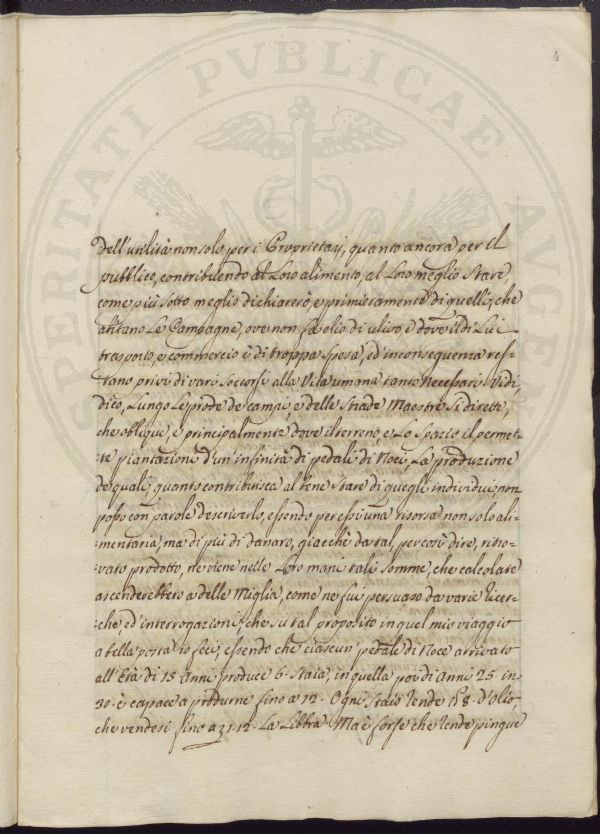 4
PROSPERITATI PVBLICAE AVGENDAE
dell'utilità non solo per i Proprietarj, quanto ancora per il
pubblico, contribuendo al Loro alimento, al Loro meglio Stare,
come più sotto meglio dichiarerò, e primieramente di quelli, che
abitano Le Campagne, ove non fa olio di ulivo, e dove il di Lui
trasporto, e commercio è di troppa spesa, ed'inconseguenza res-
tano privi di vari Soccorsi alla Vita umana tanto Necessari. Vidi,
dico, Lungo Le prode de campi, e delle Strade Maestre Si dirette,
che oblique, e principalmente dove il terreno, e Lo Spazio il permet-
-te piantazioni d'un'infinità di pedali di Noci, La produzione
de quali, quanto contribuisca al bene Stare di quegli individui non
posso con parole descriverlo, essendo per essi una risorsa non solo ali-
-mentaria, ma di più di danaro, giacchè da tal, per così dire, ritro-
-vato prodotto, ne viene nelle Loro mani tali Somme, che calcolate
ascenderebbero a delle Miglia, come ne fui persuaso da varie ricer-
-che, ed'interrogazioni, che su tal proposito in quel mio viaggio
a bella posta io feci, essendo che ciascun pedale di Noce arrivato
all'Età di 15 Anni produce 6. Staia, in quella poi di Anni 25. in
30. è capace a produrne fino a 12. Ogni Staio rende 8. d'Olio,
che vendesi fino a 12. La Libbra. Ma è forse che rende pingue